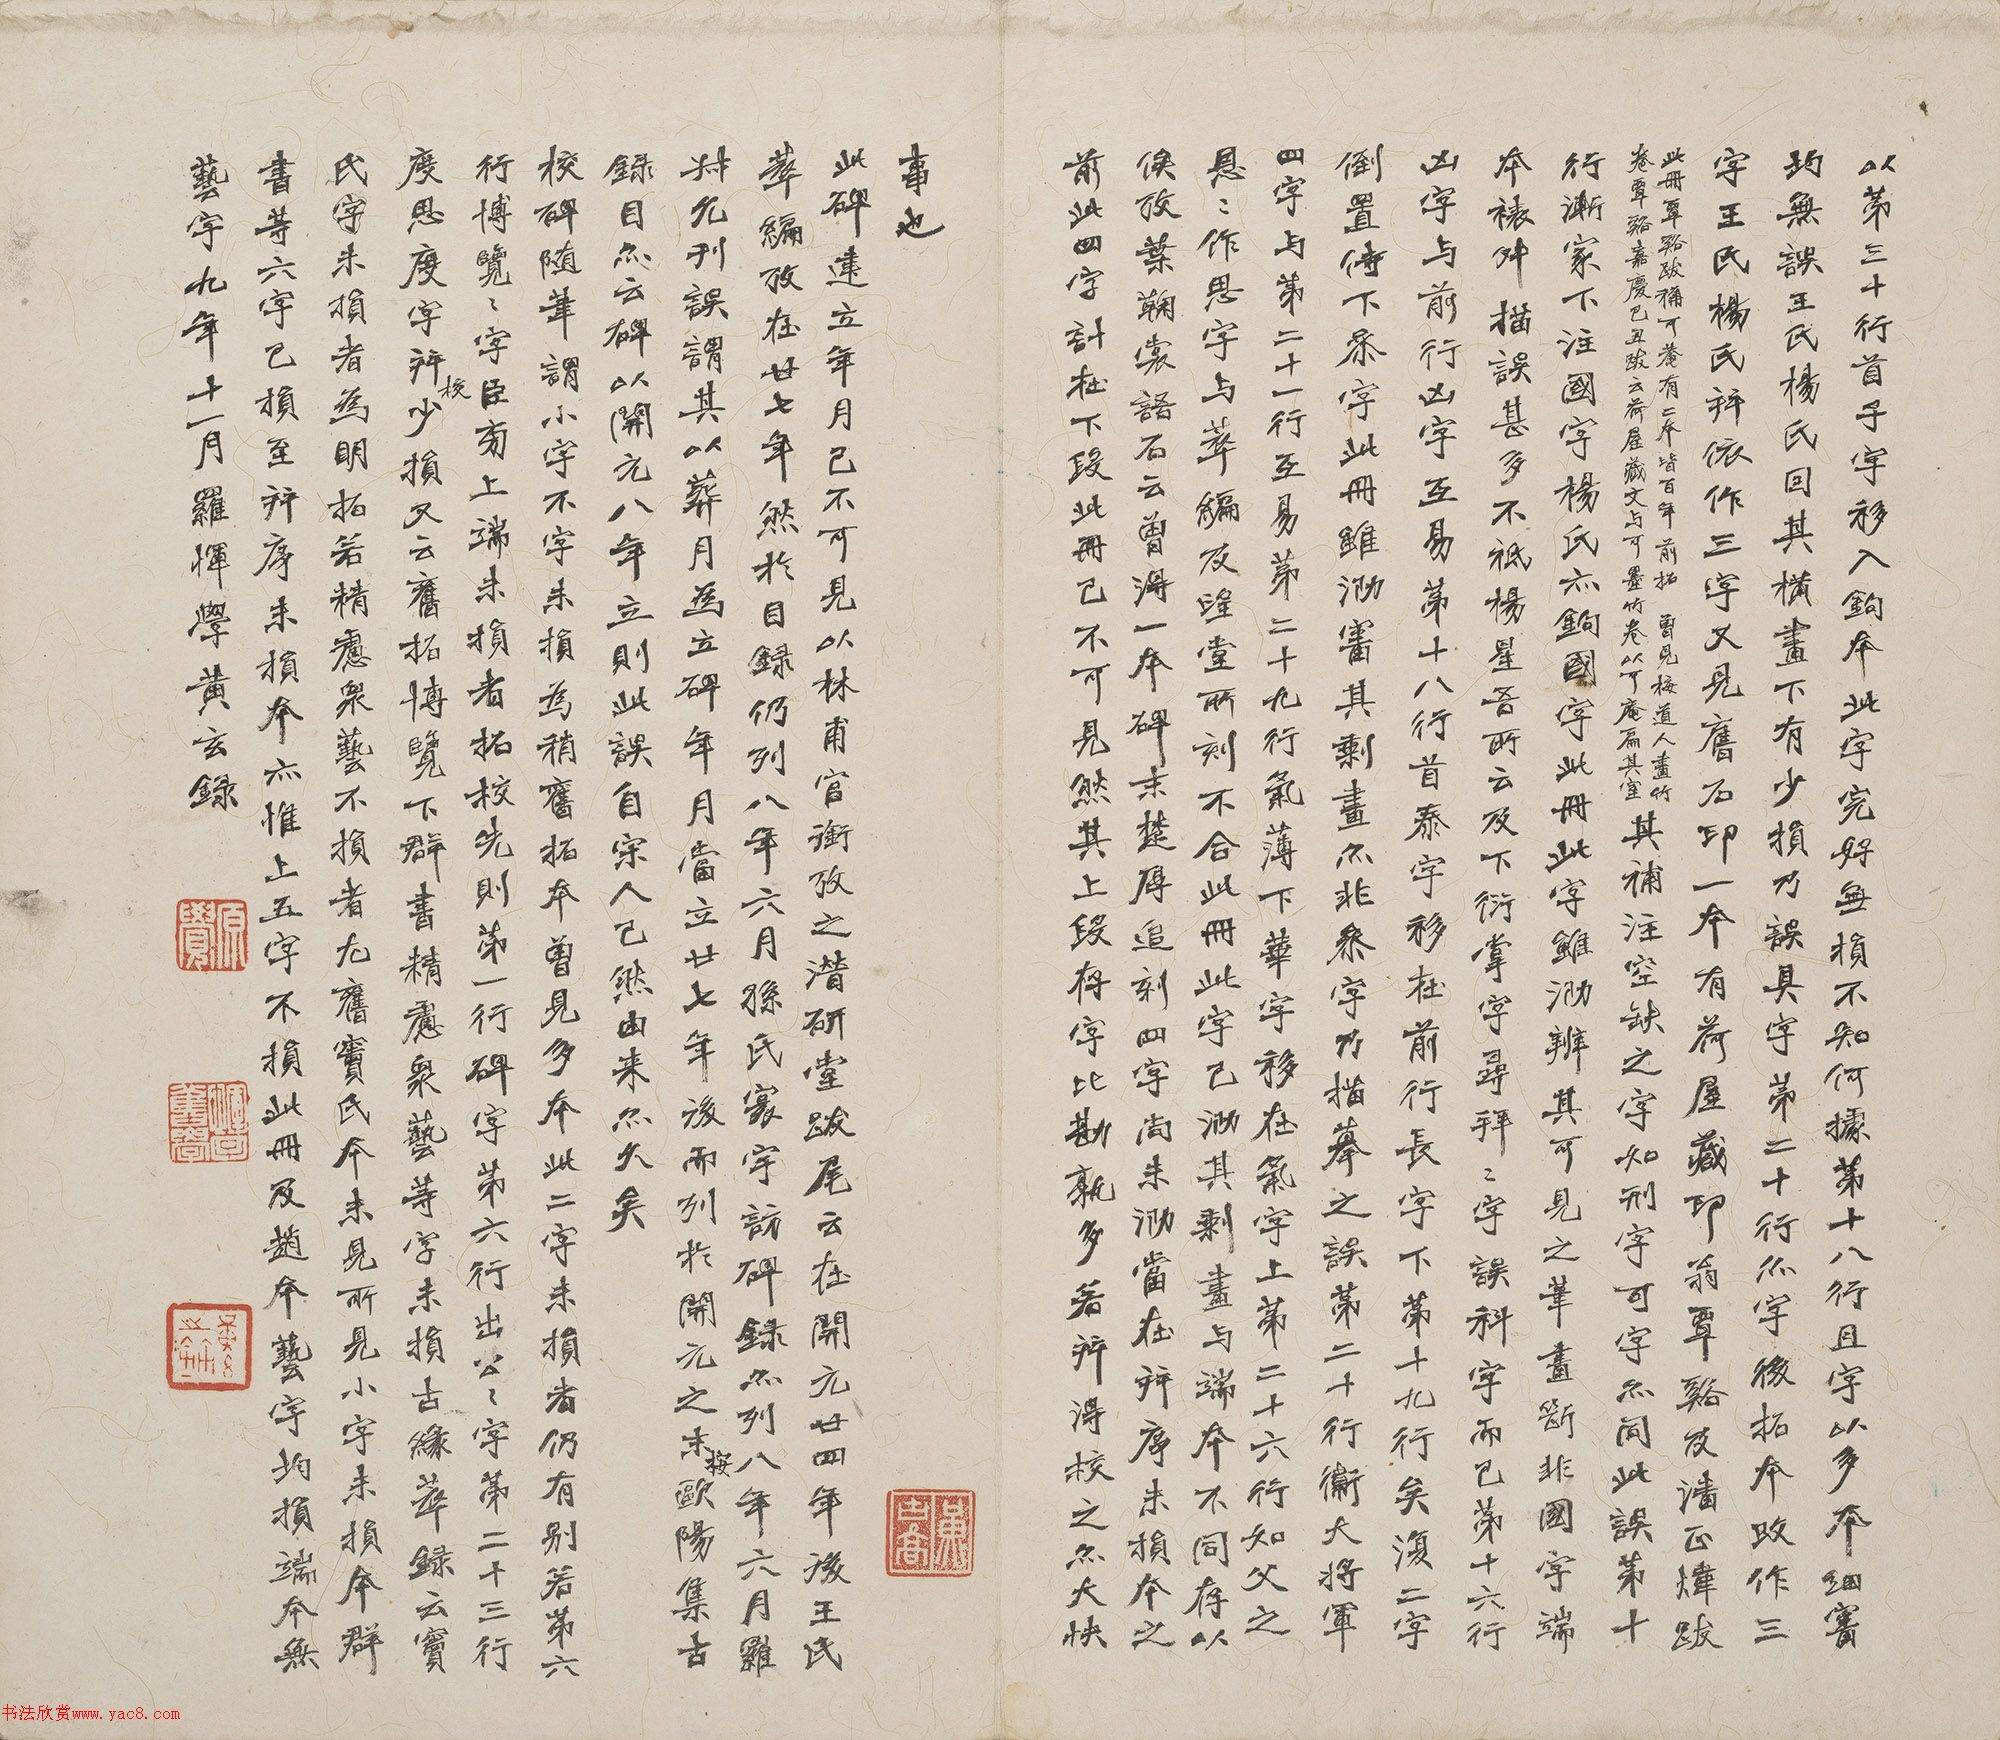 以第三十行首子字移入鉤本此字完好無損不知何據第十八行且字以多本細審
均無誤王氏楊氏回其橫畫下有少損乃誤具字第二十行尒字後拓本改作三
字王氏楊氏并依作三字又見舊石印一本有荷屋藏印翁覃谿及潘正煒跋
此冊覃谿跋稱可菴有二本皆百年前拓 曾見梅道人畫竹
卷覃谿嘉慶己丑跋云荷屋藏文与可墨竹卷以可庵扁其室
其補注空缺之字知刑字可字尒同此誤第十
行漸家下注國字楊氏亦鉤國字此冊此字雖泐辨其可見之筆畫斷非國字端
本裱舛描誤甚多不祇楊星吾所云及下衍掌字尋拜〻字誤科字而已第十六行
凶字与前行凶字互易第十八行首泰字移在前行長字下第十九行矣復二字
倒置侍下叅字此冊雖泐審其剩畫尒非叅字乃描摹之誤第二十行衞大將軍
四字与第二十一行互易第二十九行氣薄下華字移在氣字上第二十六行知父之
恳〻作思字与萃編及望堂所刻不合此冊此字已泐其剩畫与端本不同存以
俟攷葉鞠裳語石云曾得一本碑末楚厚追刻四字尚未泐當在并序未損本之
前此四字計在下段此冊已不可見然其上段存字比勘孰多若并得校之尒大快
事也
此碑建立年月已不可見以林甫官銜攷之潛研堂跋尾云在開元廿四年後王氏
萃編攷在廿七年然於目錄仍列八年六月孫氏寰宇訪碑錄尒列八年六月羅
叔允刊誤謂其以葬月為立碑年月當立廿七年後而列於開元之末按歐陽集古
錄目尒云碑以開元八年立則此誤自宋人已然由来尒久矣
校碑隨筆謂小字不字未損為稍舊拓本曾見多本此二字未損者仍有別若第六
行博覽〻字臣甫上端未損者拓校先則第一行碑字第六行出公〻字第二十三行
度思度字并校少損又云舊拓博覽下群書精慮衆藝等字未損古緣萃錄云竇
氏字未損者為明拓若精慮衆藝不損者尤舊竇氏本未見所見小字未損本群
書等六字已損至并序未損本亦惟上五字不損此冊及趙本藝字均損端本無
藝字九年十一月羅惲學黃玄錄
书法欣赏www.yac8.com